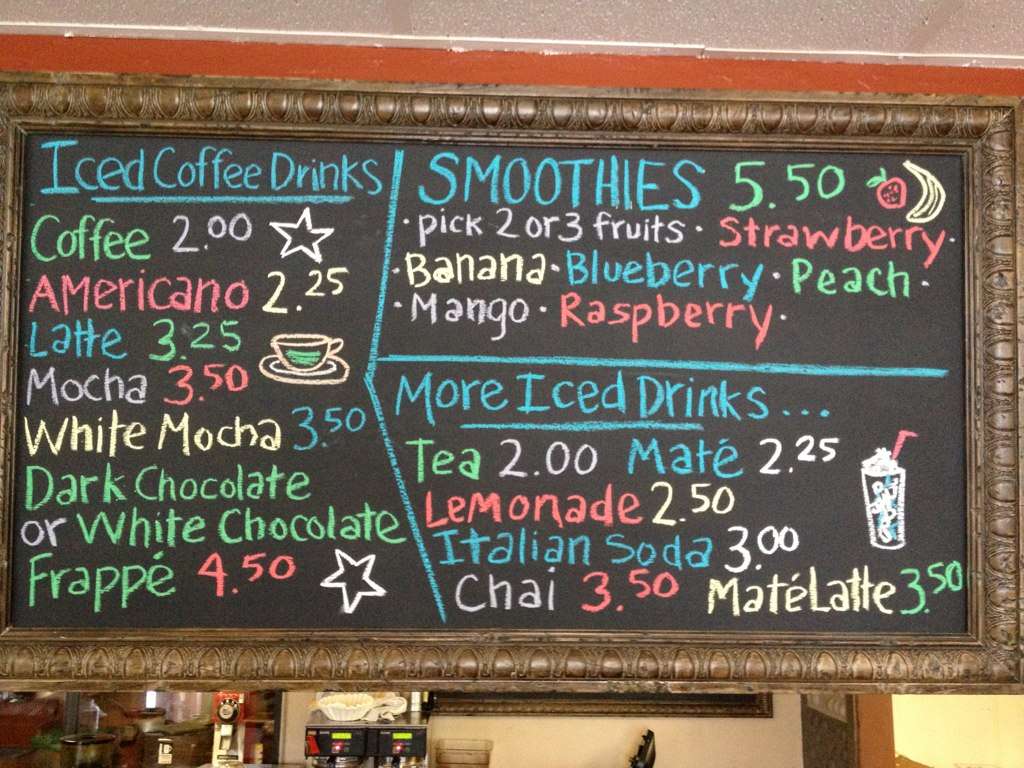 Iced Coffee Drinks
Coffee 2.00
Americano 2.25
Latte 3.25
Mocha 3.50
White Mocha 3.50
Dark Chocolate
or White Chocolate
Frappé 4.50
SMOOTHIES 5.50
· pick 2 or 3 fruits · Strawberry ·
· Banana · Blueberry · Peach ·
· Mango · Raspberry ·
More Iced Drinks...
Tea 2.00 Maté 2.25
Lemonade 2.50
Italian Soda 3.00
Chai 3.50 Maté Latte 3.50